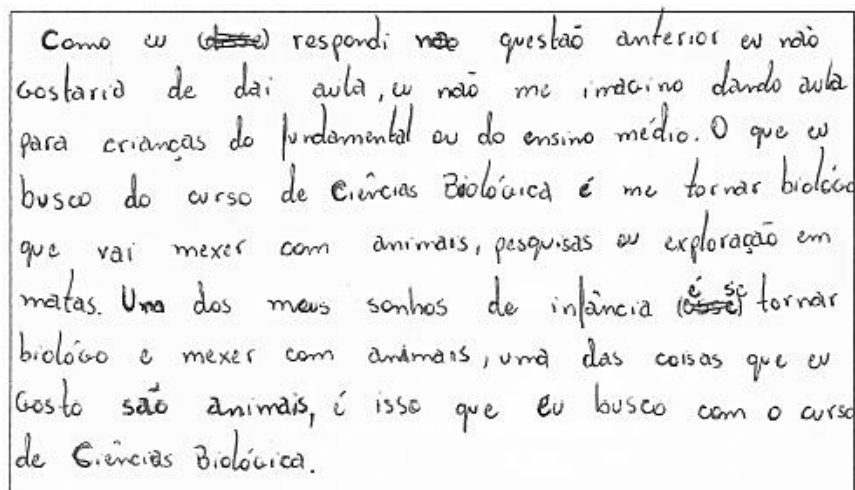 Como eu (disse) respondi na questão anterior eu não
gostaria de dai aula, eu não me imagino dando aula
para crianças do fundamental ou do ensino médio. O que eu
busco do curso de Ciências Biológica é me tornar biológo
que vai mexer com animais, pesquisas ou exploração em
matas. Um dos meus sonhos de infância é se tornar
biológo e mexer com animais, uma das coisas que eu
gosto são animais, é isso que eu busco com o curso
de Ciências Biológica.